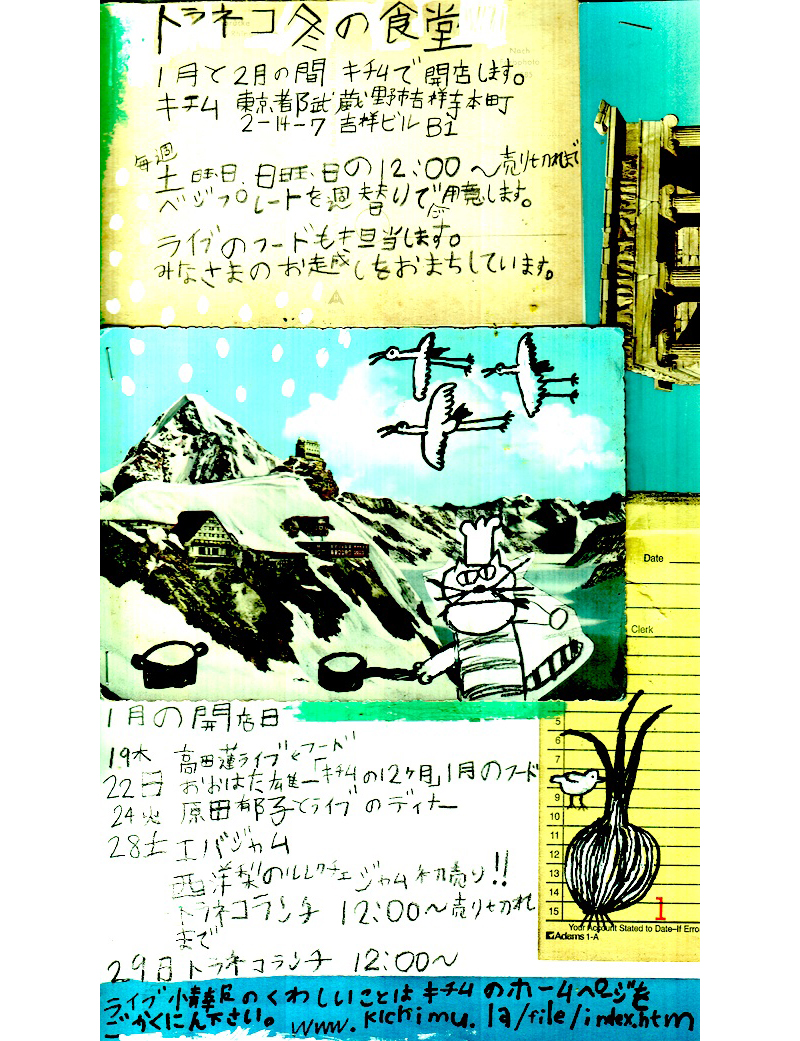 トラネコ冬の食堂
1月と2月の間 キチムで開店します。
キチム 東京都武蔵野市吉祥寺本町
2-14-7 吉祥ビル B1
毎週
土曜日、日曜日の12:00〜売り切れまで
ベジプレートを週替りでご用意します。
ライブのフードも担当します。
みなさまのお越しをおまちしています。
Date
Clerk
1月の開店日
19木 高田蓮ライブとフード
22日 おおはた雄一「キチムの12ヶ月」1月のフード
24火 原田郁子とライブのディナー
28土 エバジャム
西洋梨のルレクチェジャム初売り!!
トラネコランチ 12:00〜売り切れ
まで
29日 トラネコランチ 12:00〜
5
6
7
8
9
10
11
12
13
14
15
1
Your Account Stated to Date-If Erro
Adams 1-A
ライブ情報のくわしいことはキチムのホームページを
ごかくにん下さい。 www.kichimu.la/file/index.htm